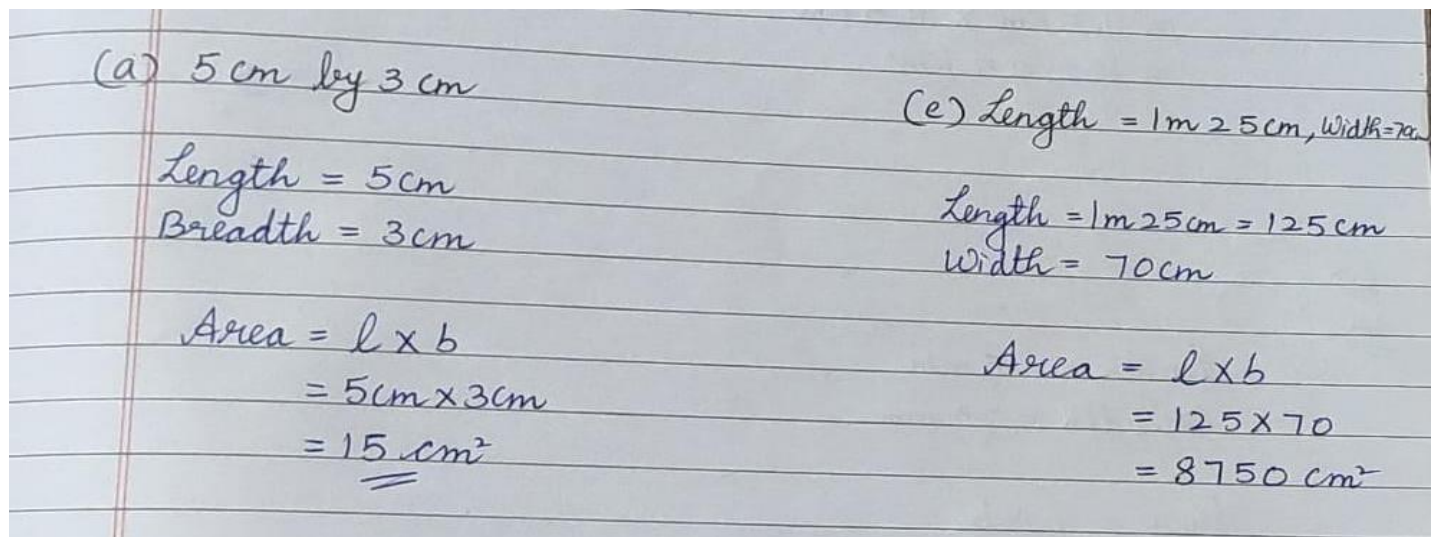 (a) 5 cm by 3 cm
Length = 5cm
Breadth = 3cm
Area = l × b
= 5cm × 3cm
= 15 cm²
(e) Length = 1m 25cm, Width=70cm
Length = 1m 25cm = 125cm
Width = 70cm
Area = l×b
= 125×70
= 8750 cm²